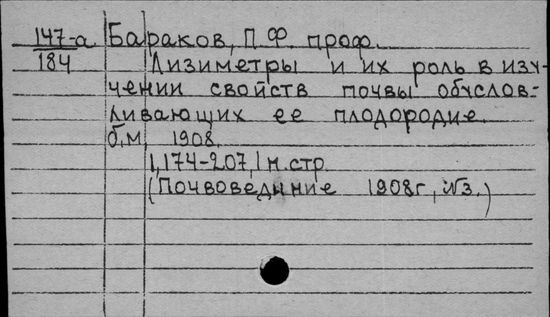 147-а Бараков, П.Ф. проф.
184 Лизиметры и их роль в изу-
чении свойств почвы обуслов-
ливающих ее плодородие.
б.м, 1908.
1,174-207,1 н.стр.
(Почвоведение 1908г, №3.)